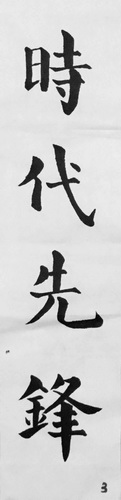 時代先鋒
3